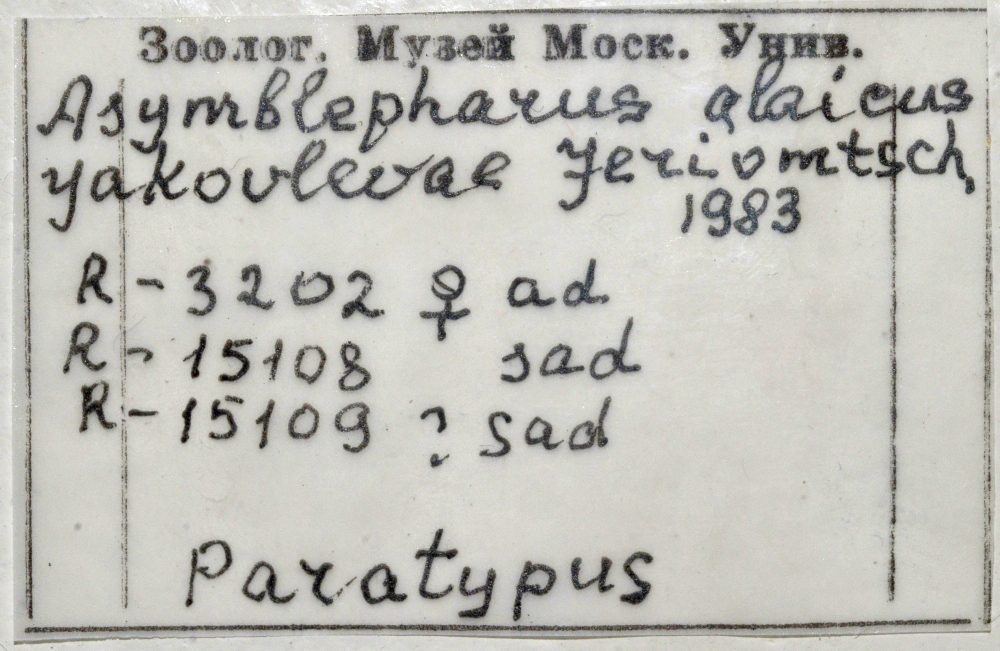 Зоолог. Музей Моск. Унив.
Asymblepharus alaicus
yakovlevae Jeriomtsch,
1983
R - 3202 ♀ ad
R - 15108 sad
R - 15109 ? sad
Paratypus